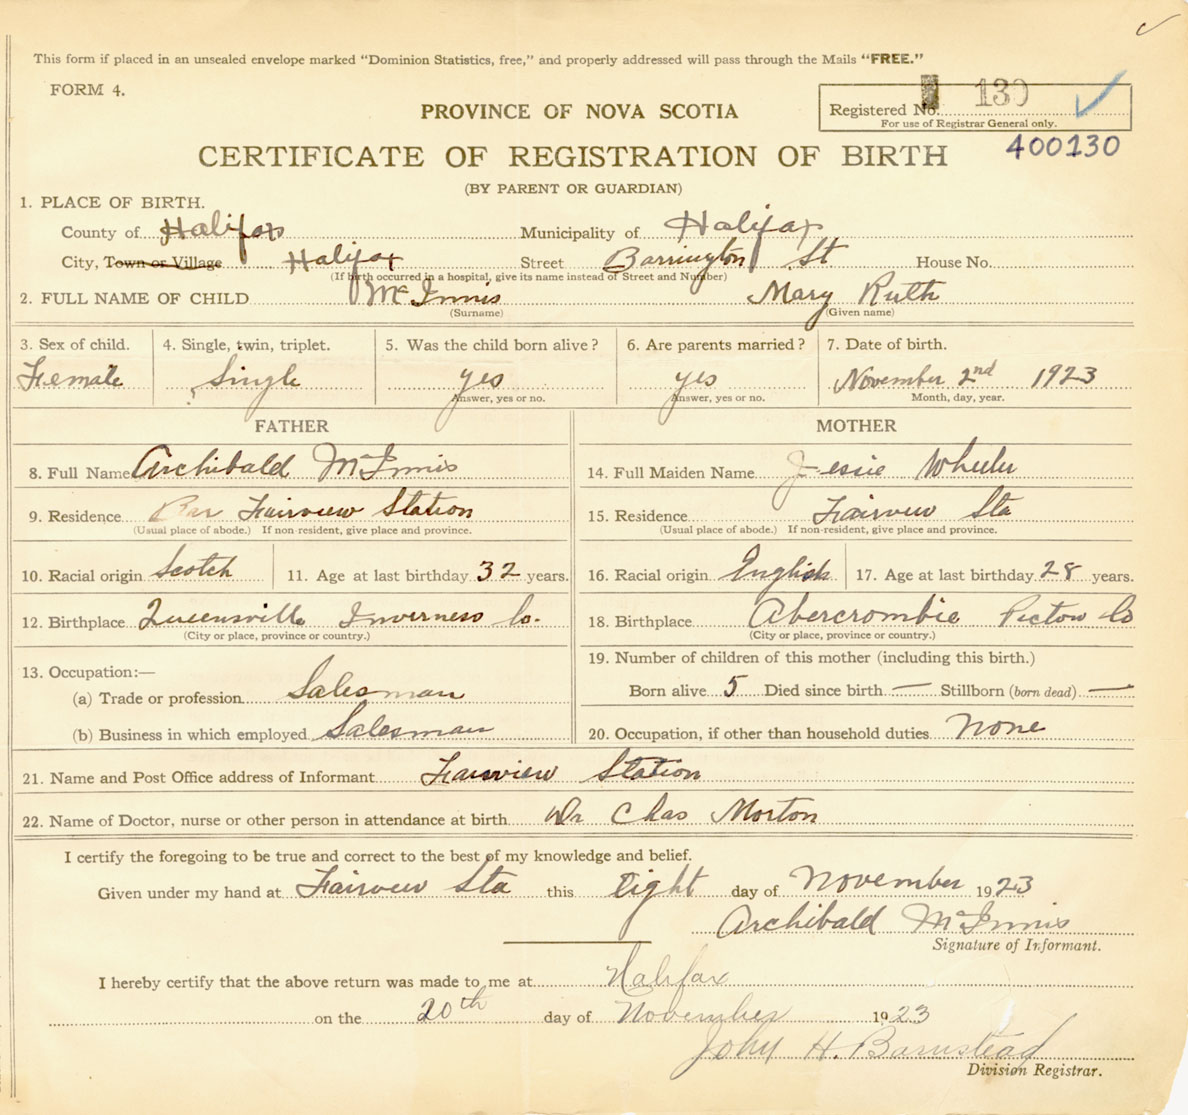 This form if placed in an unsealed envelope marked "Dominion Statistics, free," and properly addressed will pass through the Mails "FREE."
FORM 4.
Registered No. 130
For use of Registrar General only.
PROVINCE OF NOVA SCOTIA
400130
CERTIFICATE OF REGISTRATION OF BIRTH
(BY PARENT OR GUARDIAN)
1. PLACE OF BIRTH.
County of Halifax Municipality of Halifax
City, Town or Village Halifax Street Barrington St House No.
(If birth occurred in a hospital, give its name instead of Street and Number)
2. FULL NAME OF CHILD McInnis Mary Ruth
(Surname) (Given name)
3. Sex of child. 4. Single, twin, triplet. 5. Was the child born alive? 6. Are parents married? 7. Date of birth.
Female Single yes yes November 2nd 1923
Answer, yes or no. Answer, yes or no. Month, day, year.
FATHER MOTHER
8. Full Name Archibald McInnis 14. Full Maiden Name Jessie Wheeler
9. Residence Fairview Station 15. Residence Fairview Sta
(Usual place of abode.) If non-resident, give place and province. (Usual place of abode.) If non-resident, give place and province.
10. Racial origin Scotch 11. Age at last birthday 32 years. 16. Racial origin English 17. Age at last birthday 28 years.
12. Birthplace Queensville Inverness Co. 18. Birthplace Abercrombie Pictou Co
(City or place, province or country.) (City or place, province or country.)
13. Occupation:— 19. Number of children of this mother (including this birth.)
(a) Trade or profession Salesman Born alive 5 Died since birth — Stillborn (born dead) —
(b) Business in which employed Salesman 20. Occupation, if other than household duties None
21. Name and Post Office address of Informant Fairview Station
22. Name of Doctor, nurse or other person in attendance at birth Dr Chas Morton
I certify the foregoing to be true and correct to the best of my knowledge and belief.
Given under my hand at Fairview Sta this Eight day of November 1923
Archibald McInnis
Signature of Informant.
I hereby certify that the above return was made to me at Halifax
on the 20th day of November 1923
John H. Barnstead
Division Registrar.